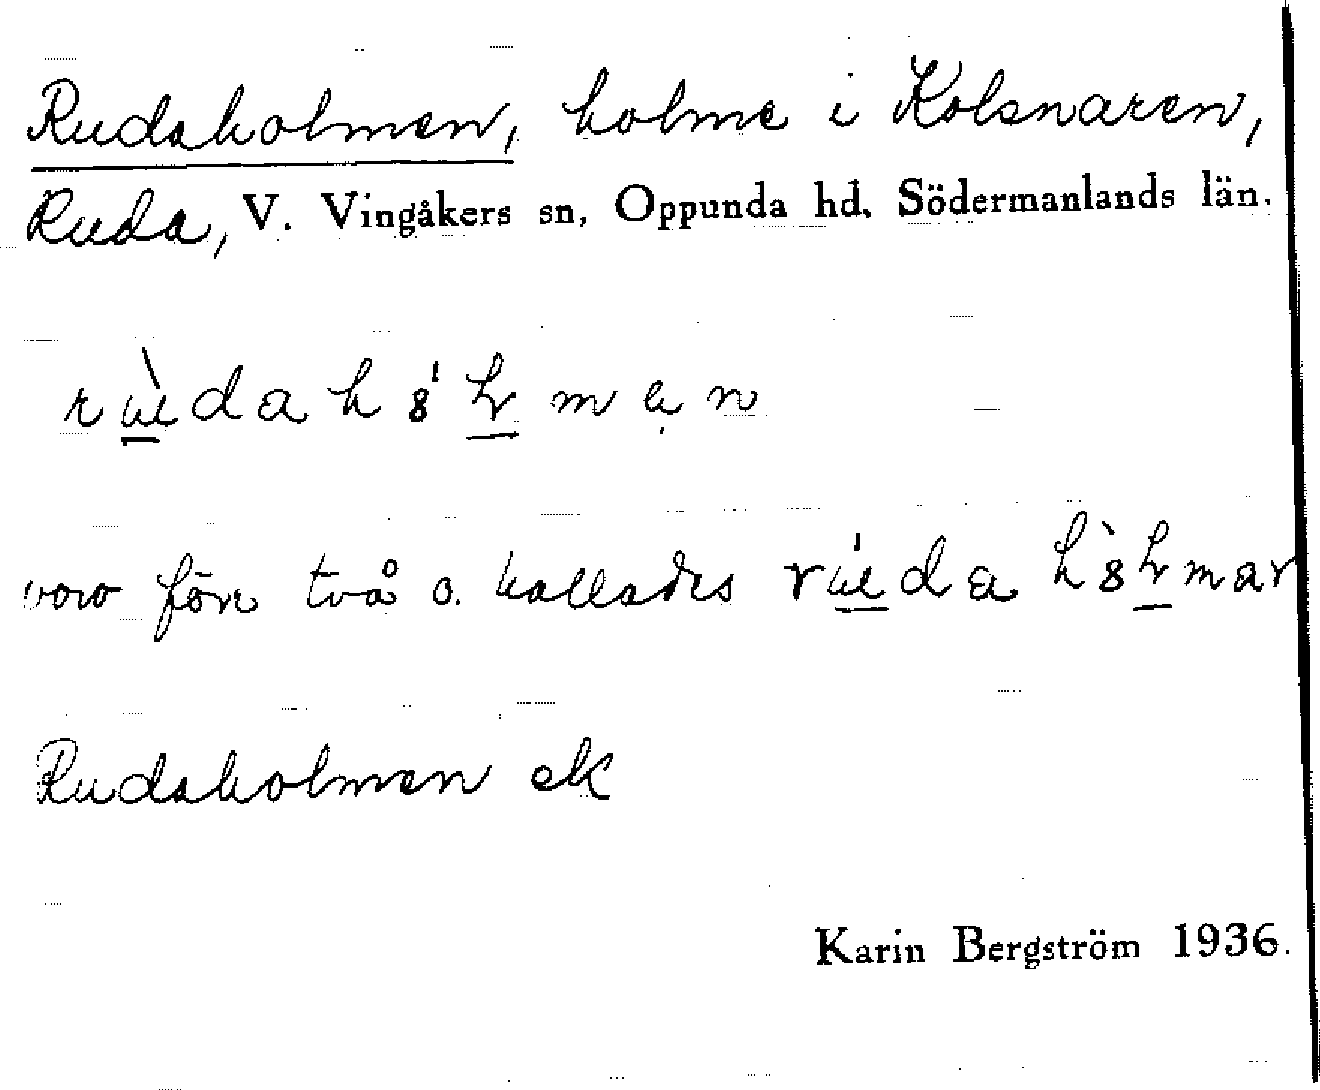 Rudaholmen, holme i Kolsnaren,
Ruda, V. Vingåkers sn, Oppunda hd, Södermanlands län.
voro förr två o. kallades
Rudaholmen ek
Karin Bergström 1936.